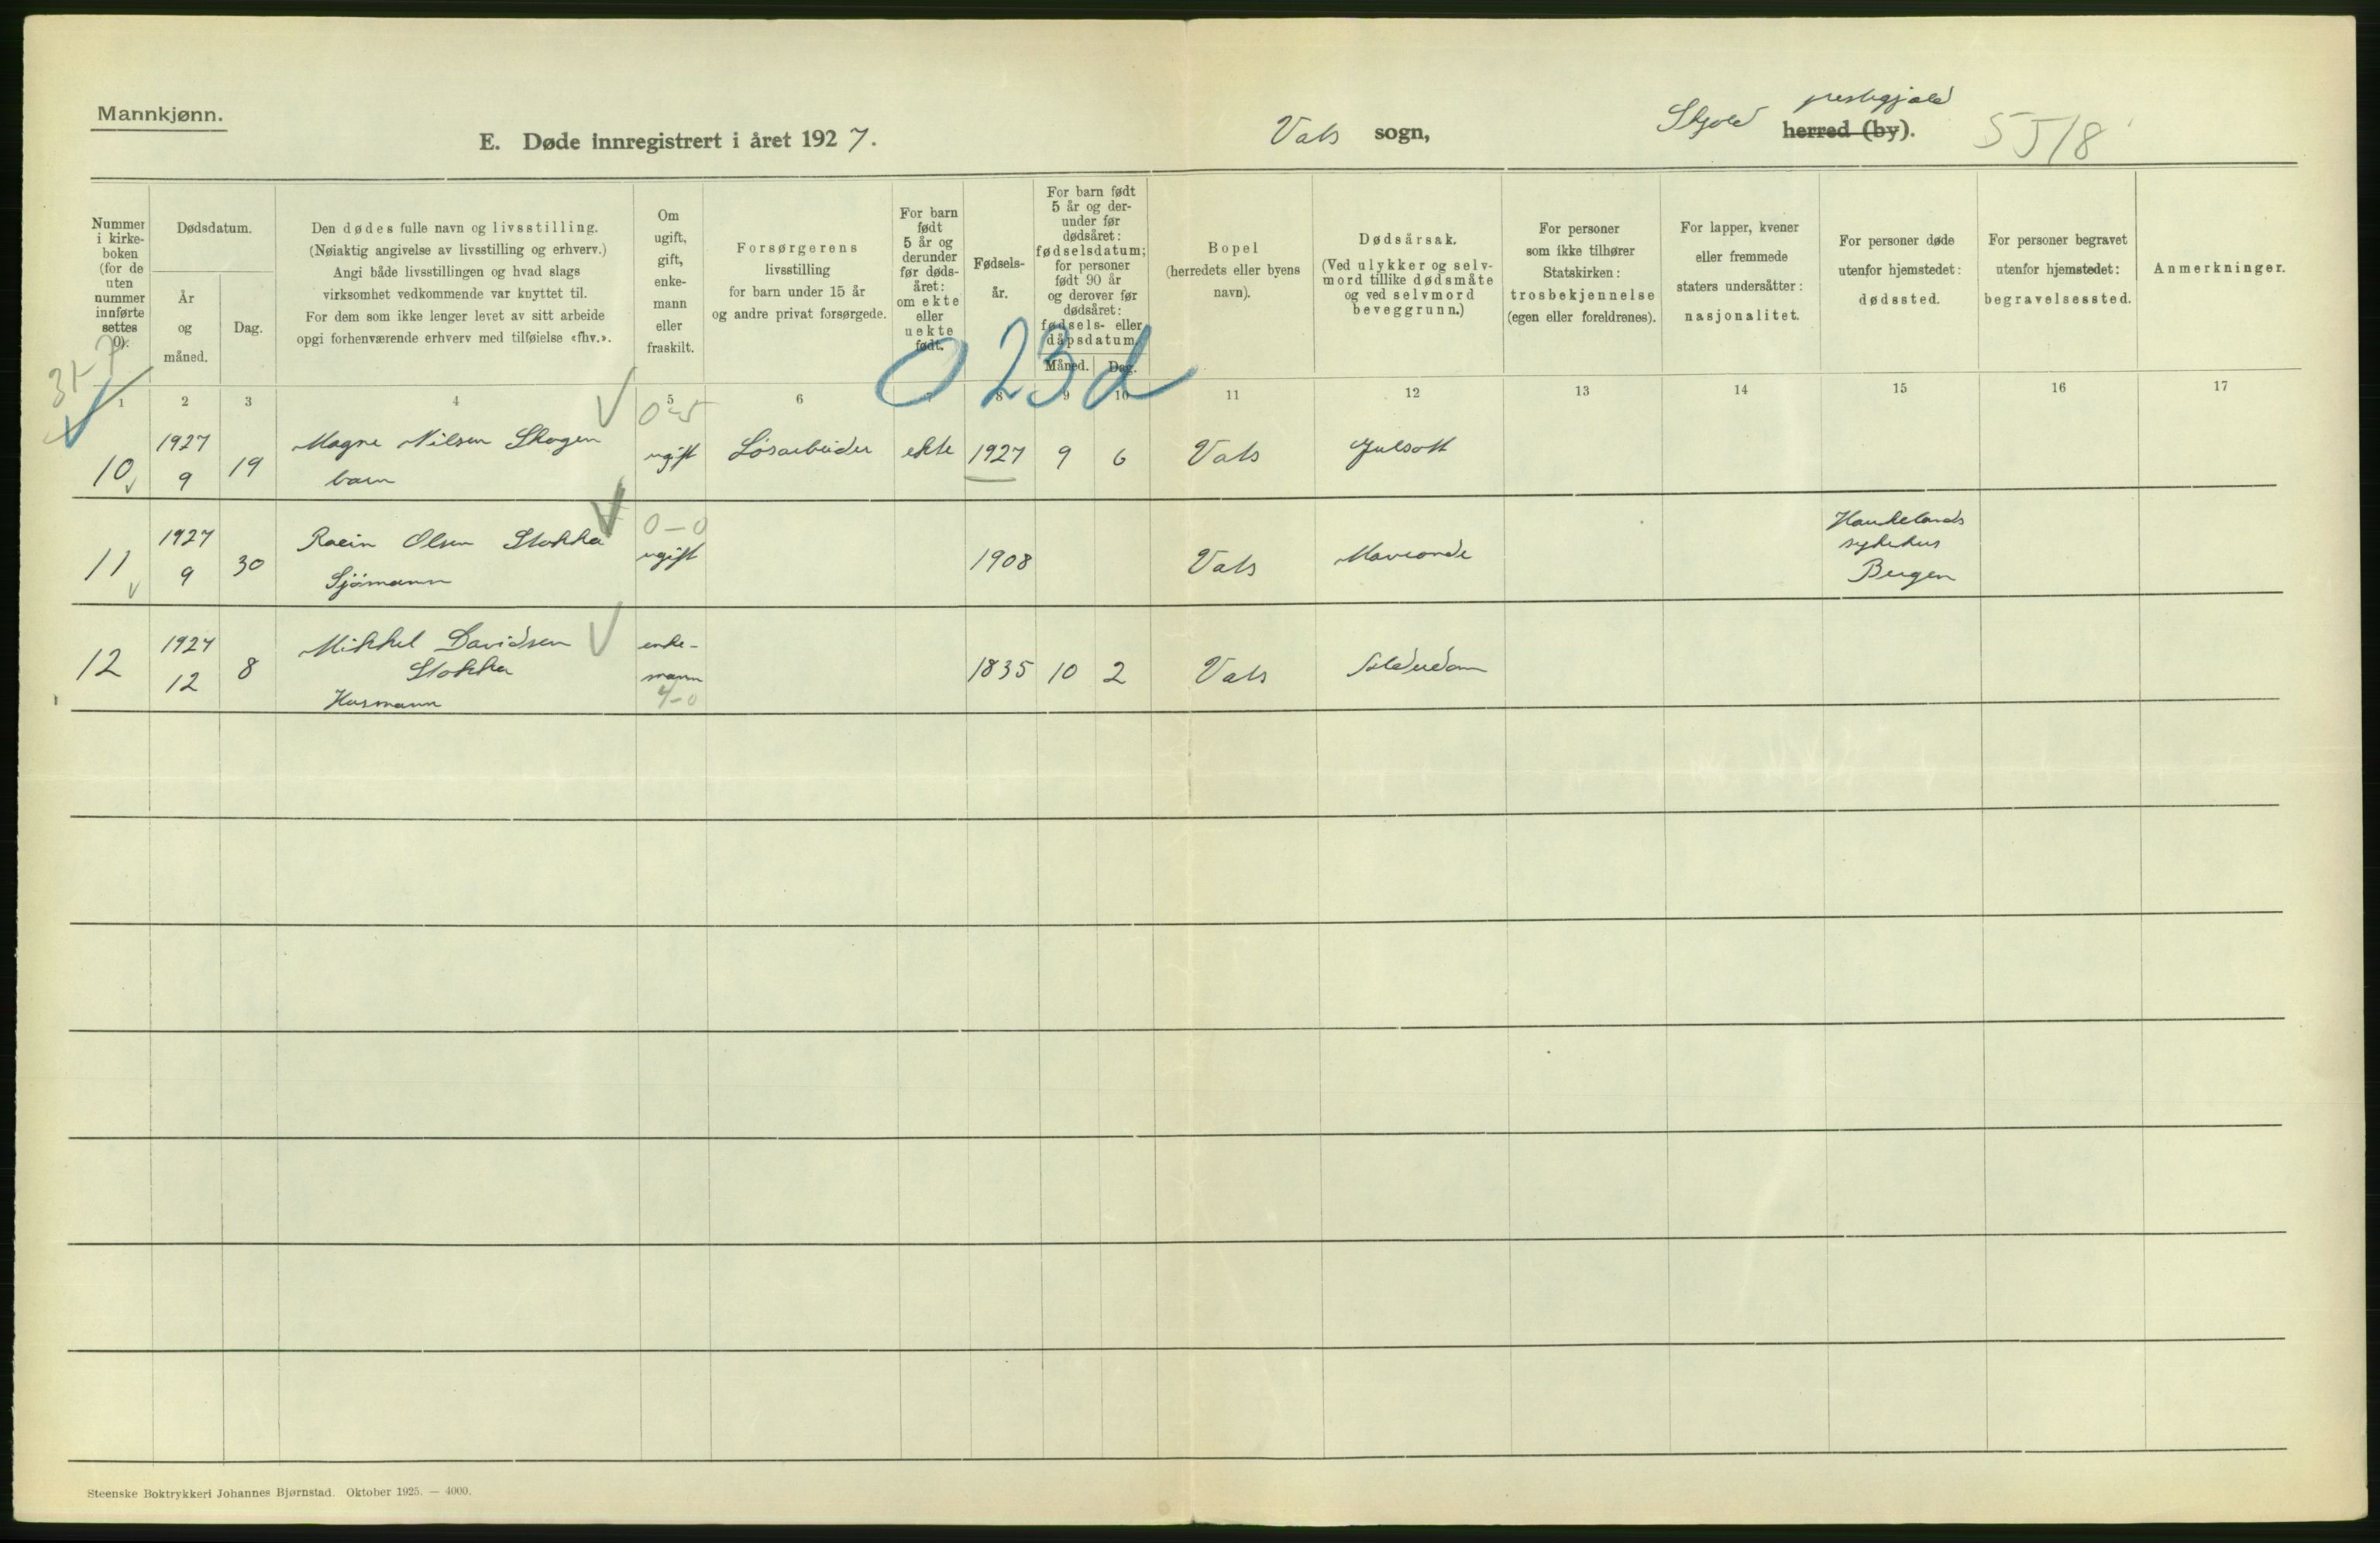 Mannkjønn.
E. Døde innregistrert i året 1927.
Vats sogn,
Skjold prestegjæld herred (by).
5518
Nummer i kirke-boken (for de uten nummer innførte settes 0).
Dødsdatum.
År og måned.
Dag.
Den dødes fulle navn og livsstilling.
(Nøiaktig angivelse av livsstilling og erhverv.)
Angi både livsstillingen og hvad slags
virksomhet vedkommende var knyttet til.
For dem som ikke lenger levet av sitt arbeide
opgi forhenværende erhverv med tilføielse «fhv.».
Om ugift, gift, enke-mann eller fraskilt.
Forsørgerens
livsstilling
for barn under 15 år
og andre privat forsørgede.
For barn født 5 år og derunder før døds-året: om ekte eller uekte født.
Fødsels-år.
For barn født 5 år og der-under før dødsåret: fødselsdatum; for personer født 90 år og derover før dødsåret: fødsels- eller dåpsdatum.
Måned.
Dag.
Bopel
(herredets eller byens
navn).
Dødsårsak.
(Ved ulykker og selv-
mord tillike dødsmåte
og ved selvmord
beveggrunn.)
For personer
som ikke tilhører
Statskirken:
trosbekjennelse
(egen eller foreldrenes).
For lapper, kvener
eller fremmede
staters undersåtter:
nasjonalitet.
For personer døde
utenfor hjemstedet:
dødssted.
For personer begravet
utenfor hjemstedet:
begravelsessted.
Anmerkninger.
023d
1 2 3 4 5 6 7 8 9 10 11 12 13 14 15 16 17
0-5
10 1927 9 19 Magne Nilsen Skogen
barn
ugift Løsarbeider ekte 1927 9 6 Vats Gulsott
0-0
11 1927 9 30
Olsen Stokka
Sjømann
ugift 1908 Vats
Haukelands
sykehus
Bergen
12 1927 12 8 Mikkel Davidsen
Stokka
Husmann
enke-
mann
4-0
1835 10 2 Vats Alderdom
Steenske Boktrykkeri Johannes Bjørnstad. Oktober 1925. — 4000.